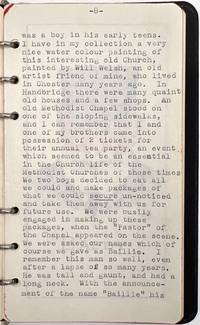 -8-
was a boy in his early teens.
I have in my collection a very
nice water colour painting of
this interesting old Church,
painted by Will Welsh, an old
artist friend of mine, who lived
in Chester many years ago. In
Handbridge there were many quaint
old houses and a few shops. An
old Methodist Chapel stood on
one of the sloping sidewalks,
and I can remember that I and
one of my brothers came into
possession of 2 tickets for
their annual tea party, an event
which seemed to be an essential
in the Church life of the
Methodist Churches of those times
We two boys decided to eat all
we could and make packages of
what we could secure un-noticed
and take them away with us for
future use. We were busily
engaged in making up these
packages, when the "Pastor" of
the Chapel appeared on the scene.
We were asked our names which of
course we gave as Baillie. I
remember this man so well, even
after a lapse of so many years.
He was tall and gaunt, and had a
long neck. With the announce-
ment of the name "Baillie" his